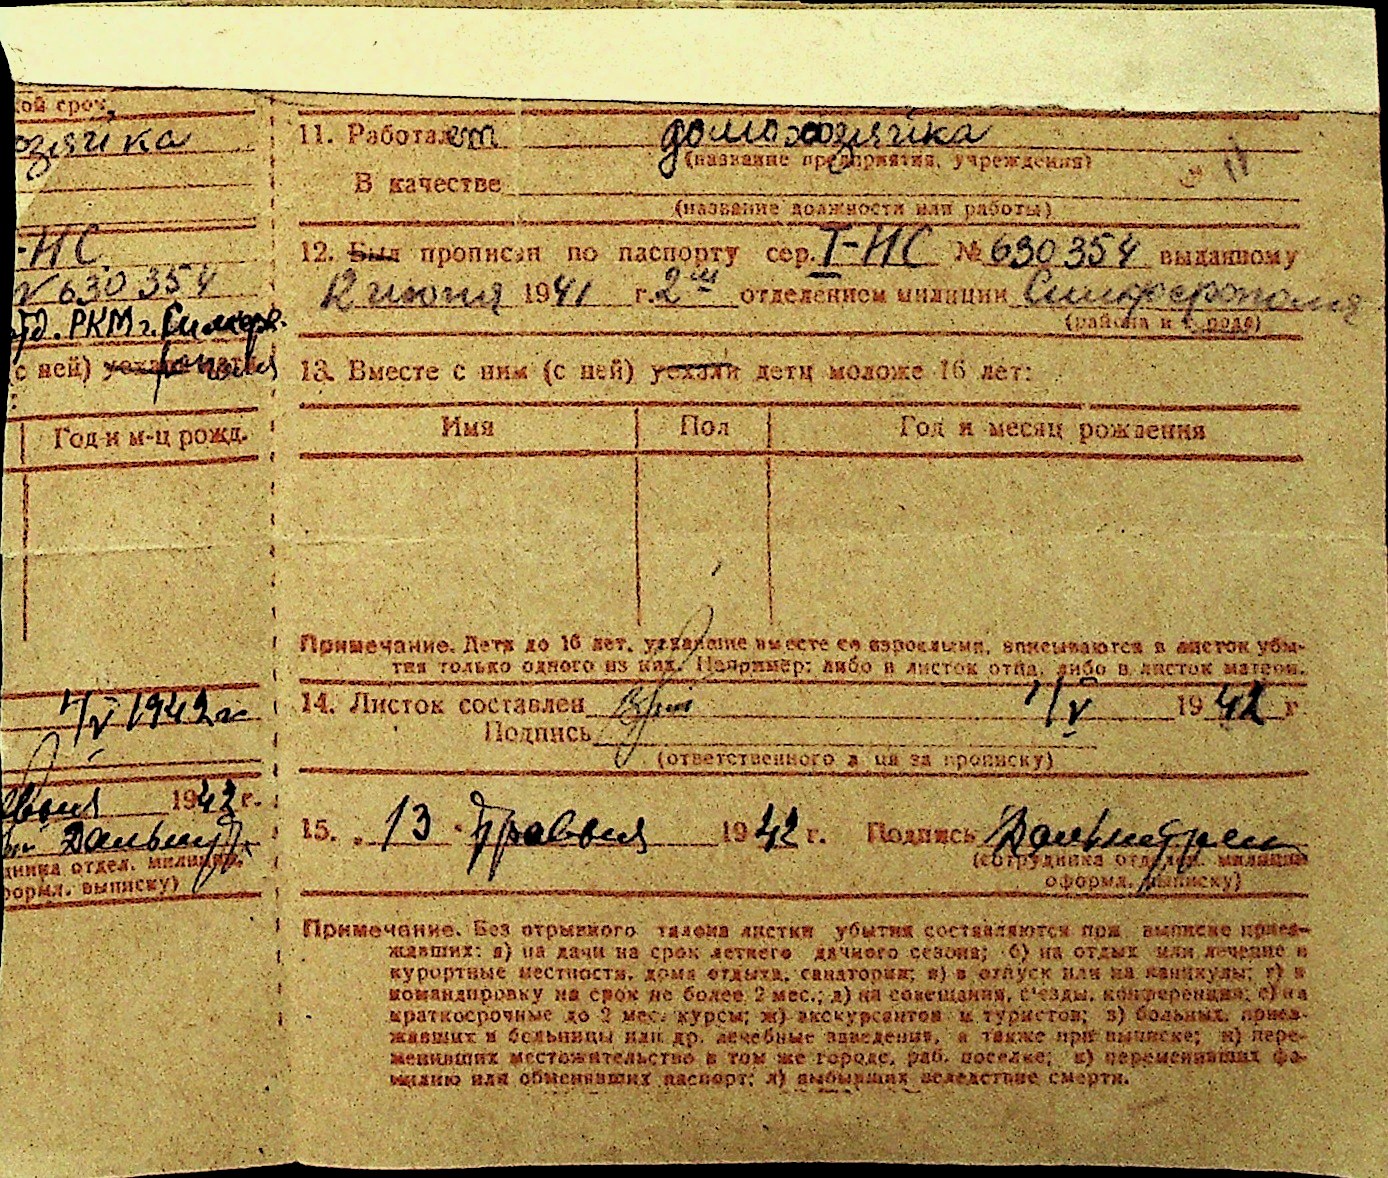 кой сроч,
озяйка
-НС
№ 630354
отд. РКМ г. Симфе-
рополя
(с ней) уехали дети
Год и м-ц рожд.
1/V 1942 г
1942 г.
дника отдел. милиции,
форми. выписку)
11. Работает домохозяйка
(название предприятия, учреждения)
В качестве
(название должности или работы)
12. Был прописан по паспорту сер. I-НС № 630354 выданному
12 июня 1941 г. 2ым отделением милиции Симферополя
(района и города)
13. Вместе с ним (с ней) уехали дети моложе 16 лет:
Имя Пол Год и месяц рождения
Примечание. Дети до 16 лет, уехавшие вместе со взрослыми, вписываются в листок убы-
тия только одного из них. Например: либо в листок отца, либо в листок матери.
14. Листок составлен 1/V 1942 г
Подпись
(ответственного лица за прописку)
15. „ 13 " травня 1942 г. Подпись
(сотрудника отделен. милиции
оформл. выписку)
Примечание. Без отрывного талона листки убытия составляются при выписке приез-
жавших: а) на дачи на срок летнего дачного сезона; б) на отдых или лечение в
курортные местности, дома отдыха, санатории; в) в отпуск или на каникулы; г) в
командировку на срок не более 2 мес.; д) на совещания, съезды, конференции; е) на
краткосрочные до 2 мес. курсы; ж) экскурсантов и туристов; з) больных, приез-
жавших в больницы или др. лечебные заведения, а также при выписке; и) пере-
менивших местожительство в том же городе, раб. поселке; к) переменивших фа-
милию или обменявших паспорт; л) выбывших вследствие смерти.